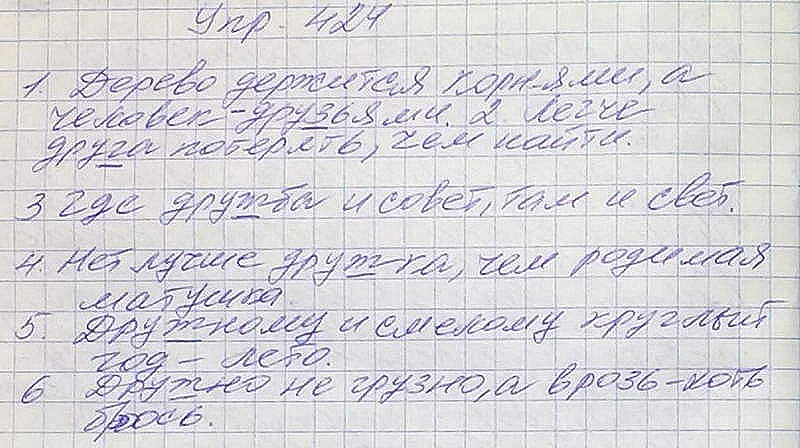 Упр. 424
1. Дерево держится корнями, а
человек - друзьями. 2. Легче
друга потерять, чем найти.
3 Где дружба и совет, там и свет.
4. Нет лучше дружка, чем родимая
матушка.
5. Дружному и смелому круглый
год - лето.
6 Дружно не грузно, а врозь - хоть
брось.